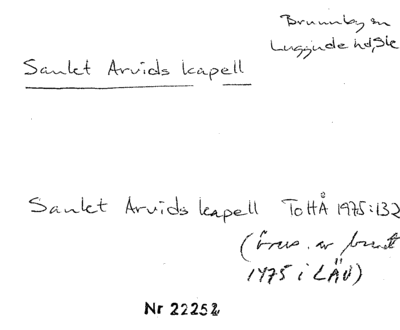 Brunnby sn
Luggude hd, Sk
Sankt Arvids kapell
Sankt Arvids kapell ToHÅ 1975:132
( av brevet
1475 i LÄU)
Nr 22252